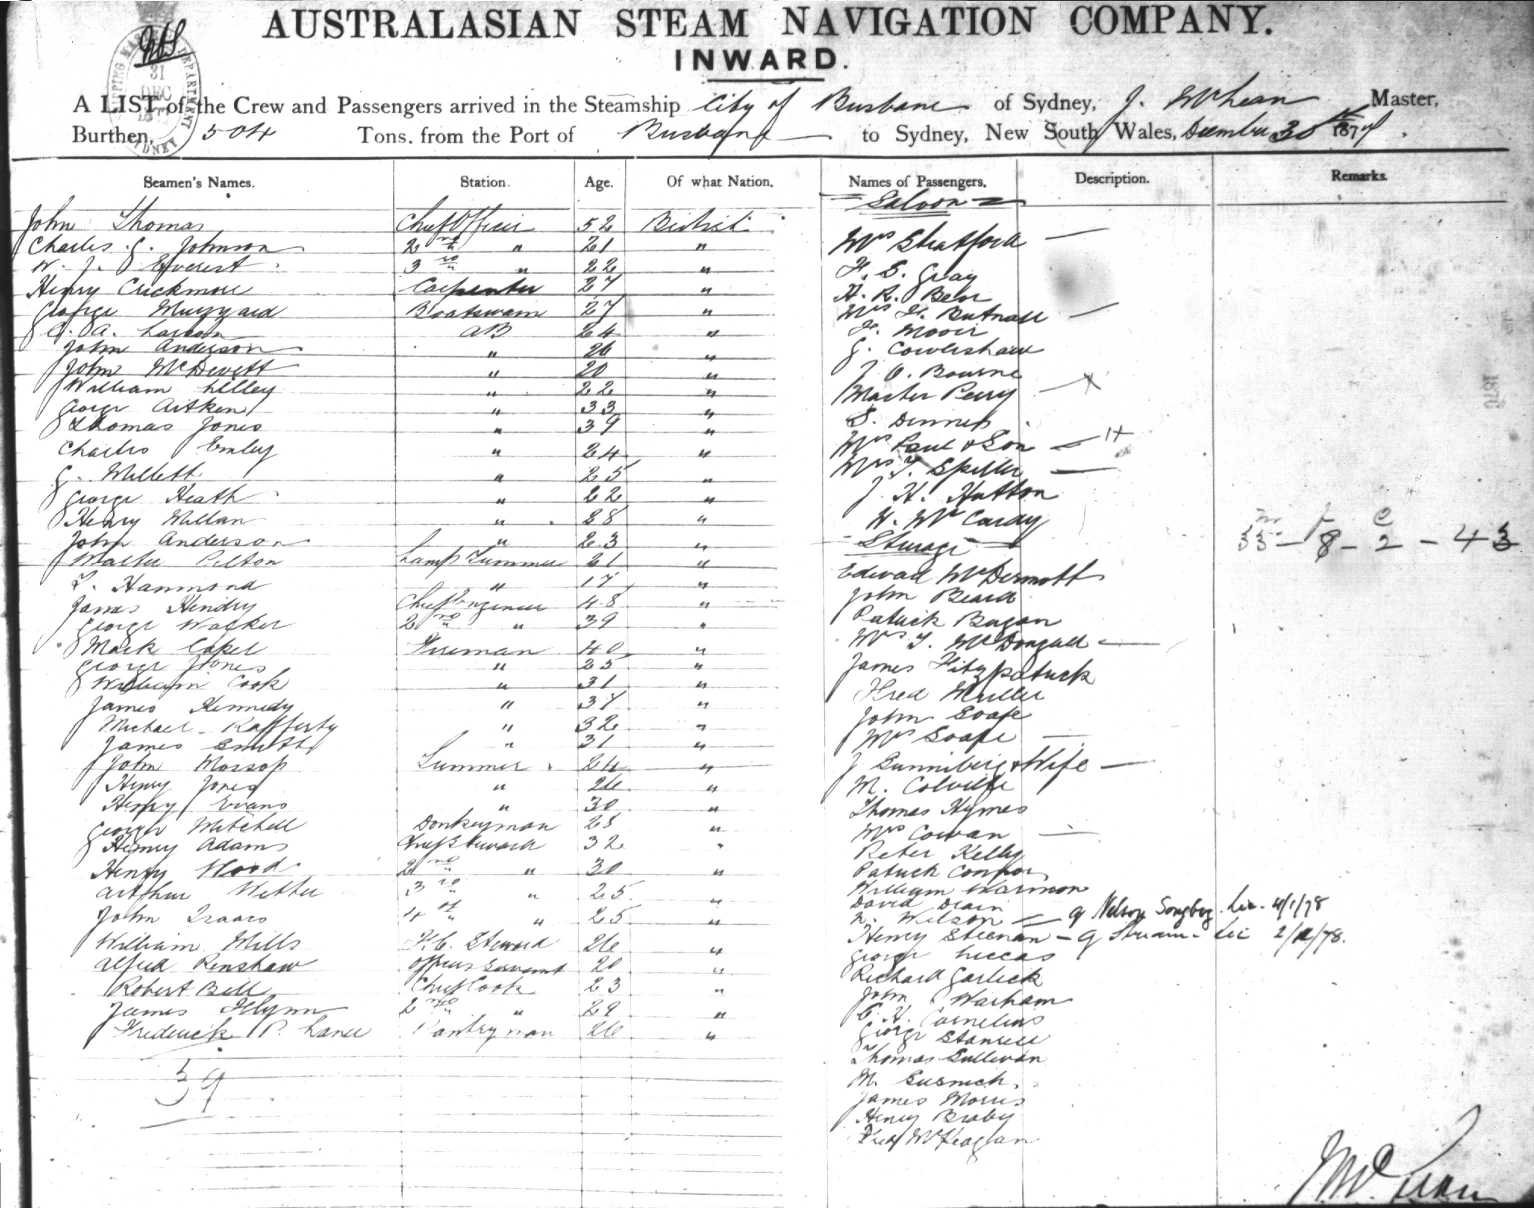 AUSTRALASIAN STEAM NAVIGATION COMPANY.
INWARD.
A LIST of the Crew and Passengers arrived in the Steamship City of Brisbane of Sydney, J. McLean Master,
Burthen, 504 Tons. from the Port of Brisbane to Sydney, New South Wales, December 30th 1877.
Seamen's Names. Station. Age. Of what Nation. Names of Passengers. Description. Remarks.
John Thomas Chief Officer 52 British
Charles G. Johnson 2nd " 21 "
W. J. Everest 3rd " 22 "
Henry Crickmore Carpenter 27 "
George Muzzard Boatswain 27 "
C. A. Larson AB 24 "
John Anderson " 26 "
John McDevett " 20 "
William Lilley " 22 "
George Aitken " 33 "
Thomas Jones " 39 "
Charles Emley " 24 "
G. Millett " 25 "
George Heath " 22 "
Henry Millan " 28 "
John Anderson " 23 "
Walter Pilton Lamp Trimmer 21 "
T. Hammond " 17 "
James Hendry Chief Engineer 48 "
George Walker 2nd " 39 "
Mark Capel Fireman 40 "
George Jones " 25 "
William Cook " 31 "
James Kennedy " 37 "
Michael Rafferty " 32 "
James Smith " 31 "
John Mossop Trimmer 24 "
Henry Jones " 26 "
Henry Evans " 30 "
George Mitchell Donkeyman 28 "
Henry Adams Chief Steward 32 "
Henry Wood 2nd " 30 "
Arthur Witter 3rd " 25 "
John Isaacs 4th " 25 "
William Mills F.C. Steward 26 "
Alfred Renshaw Officers Servant 20 "
Robert Bell Chief Cook 23 "
James Flynn 2nd " 29 "
Frederick P. Lance Pantryman 26 "
39
Saloon
Mrs Stratford
F. S. Gray
H. R. Beor
Mrs F. Butnall
F. Mooir
G. Cowlishaw
J. C. Bourne
Master Perry
S. Dinnes
Mrs Paul & Son
Mrs T. Spiller
J. H. Hutton
W. McCardy
Steerage
Edward McDermott
John Beard
Patrick Bugan
Mrs T. McDougall
James Fitzpatrick
Fred Muller
John Soape
Mrs Soape
J. Bunniberg & Wife
M. Colville
Thomas Hymes
Mrs Cowan
Peter Kelly
Patrick Connor
William Harmon
David Drain
N. Wilson g Nelson Songberg. Lic. 4/1/78
Henry Steenan g Struan. Lic 2/1/78.
George Luccas
Richard Garlick
John Warham
C. H. Cornelius
George Stanbee
Thomas Sullivan
M. Susnich
James Morris
Henry Braby
Fred McKeaglan
m f c
33 - 8 - 2 - 43
J McLean